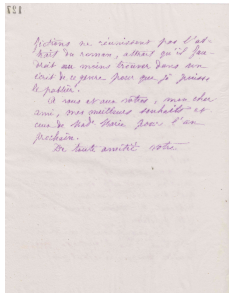 fictions ne réunissent pas l'at-
trait du roman, attrait qu'il fau-
drait au moins trouver dans un
écrit de ce genre pour que je puisse
le publier.
A vous et aux vôtres, mon cher
ami, mes meilleurs souhaits et
ceux de Mad. Marie pour l'an
prochain.
De toute amitié votre